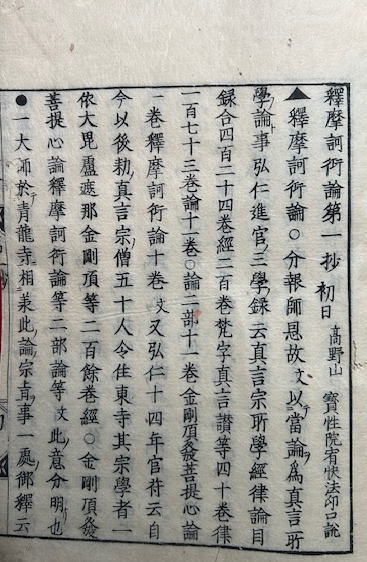 釋摩訶衍論第一抄 初日 高野山 寶性院宥快法印口說
▲釋摩訶衍論○分報師恩故文以當論爲真言所
學論事弘仁進官三學録云真言宗所學經律論目
録合四百二十四卷經二百卷梵字真言讃等四十卷律
一百七十三卷論十一卷○論二部十一卷金剛頂發菩提心論
一卷釋摩訶衍論十卷文又弘仁十四年官符云自
今以後勅真言宗僧五十人令住東寺其宗學者一
依大毘盧遮那金剛頂等二百餘卷經○金剛頂發
菩提心論釋摩訶衍論等二部論等文此意分明也
●一大師於青龍寺相承此論宗旨事一處御釋云